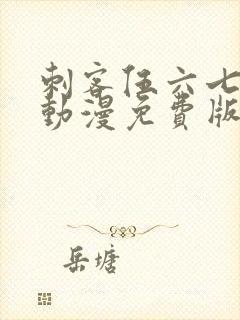 刺客伍六七
動漫免費版
岳塘